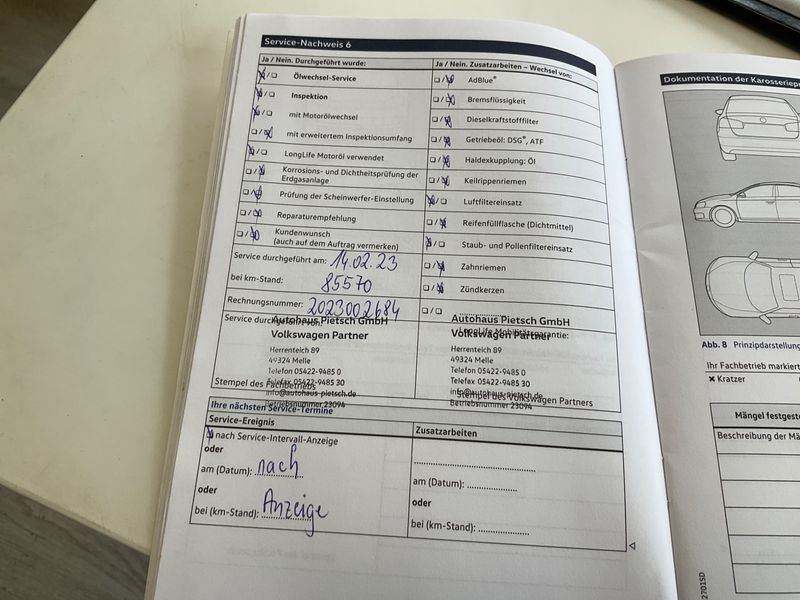 Service-Nachweis 6
Ja / Nein. Durchgeführt wurde:
Ölwechsel-Service
Inspektion
mit Motorölwechsel
mit erweitertem Inspektionsumfang
LongLife Motoröl verwendet
Korrosions- und Dichtheitsprüfung der
Erdgasanlage
Prüfung der Scheinwerfer-Einstellung
Reparaturempfehlung
Kundenwunsch
(auch auf dem Auftrag vermerken)
Service durchgeführt am: 14.02.23
bei km-Stand: 85570
Rechnungsnummer: 2023002684
Service durchgeführt von:
Autohaus Pietsch GmbH
Volkswagen Partner
Herrenteich 89
49324 Melle
Telefon 05422-9485 0
Telefax 05422-9485 30
Stempel des Fachbetriebs
info@autohaus-pietsch.de
Betriebsnummer 23094
Ja / Nein. Zusatzarbeiten – Wechsel von:
AdBlue®
Bremsflüssigkeit
Dieselkraftstofffilter
Getriebeöl: DSG®, ATF
Haldexkupplung: Öl
Keilrippenriemen
Luftfiltereinsatz
Reifenfüllflasche (Dichtmittel)
Staub- und Pollenfiltereinsatz
Zahnriemen
Zündkerzen
Autohaus Pietsch GmbH
LongLife Mobilitätsgarantie:
Volkswagen Partner
Herrenteich 89
49324 Melle
Telefon 05422-9485 0
Telefax 05422-9485 30
info@autohaus-pietsch.de
Stempel des Volkswagen Partners
Betriebsnummer 23094
Ihre nächsten Service-Termine
Service-Ereignis
nach Service-Intervall-Anzeige
oder
am (Datum): nach
oder
bei (km-Stand): Anzeige
Zusatzarbeiten
am (Datum):
oder
bei (km-Stand):
Dokumentation der
Abb. 8 Prinzipdarstellung
Ihr Fachbetrieb markiert
x Kratzer
Mängel
Beschreibung der